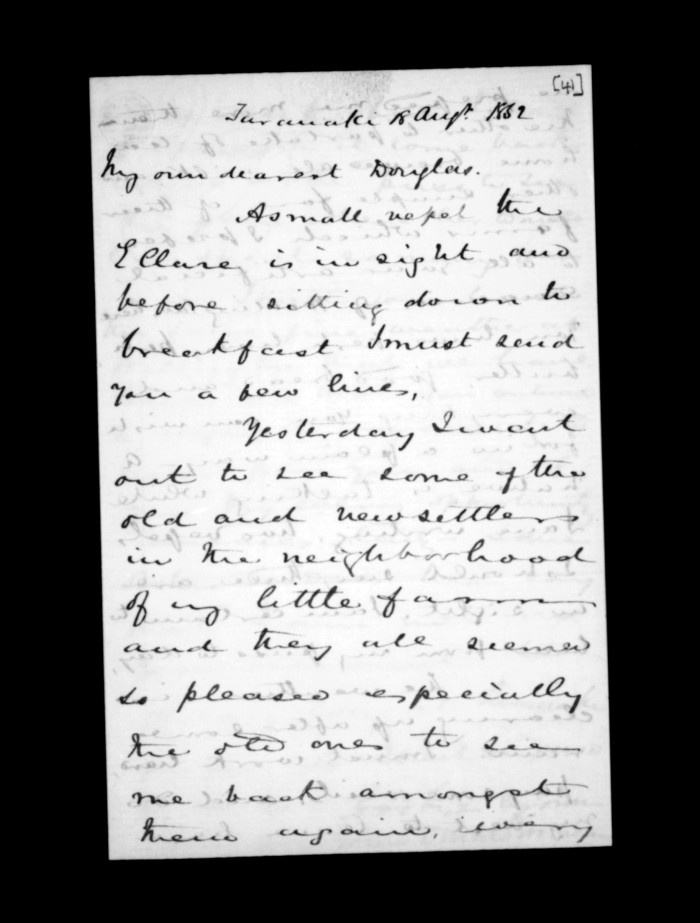 [4]
Taranaki 18 Augt. 1862
My own dearest Douglas.
A small vessel the
E Clare, is in sight and
before sitting down to
breakfast I must send
you a few lines,
Yesterday I went
out to see some of the
old and new settlers
in the neighborhood
of my little farm
and they all seemed
so pleased especially
the old ones to see
me back amongst
them again,